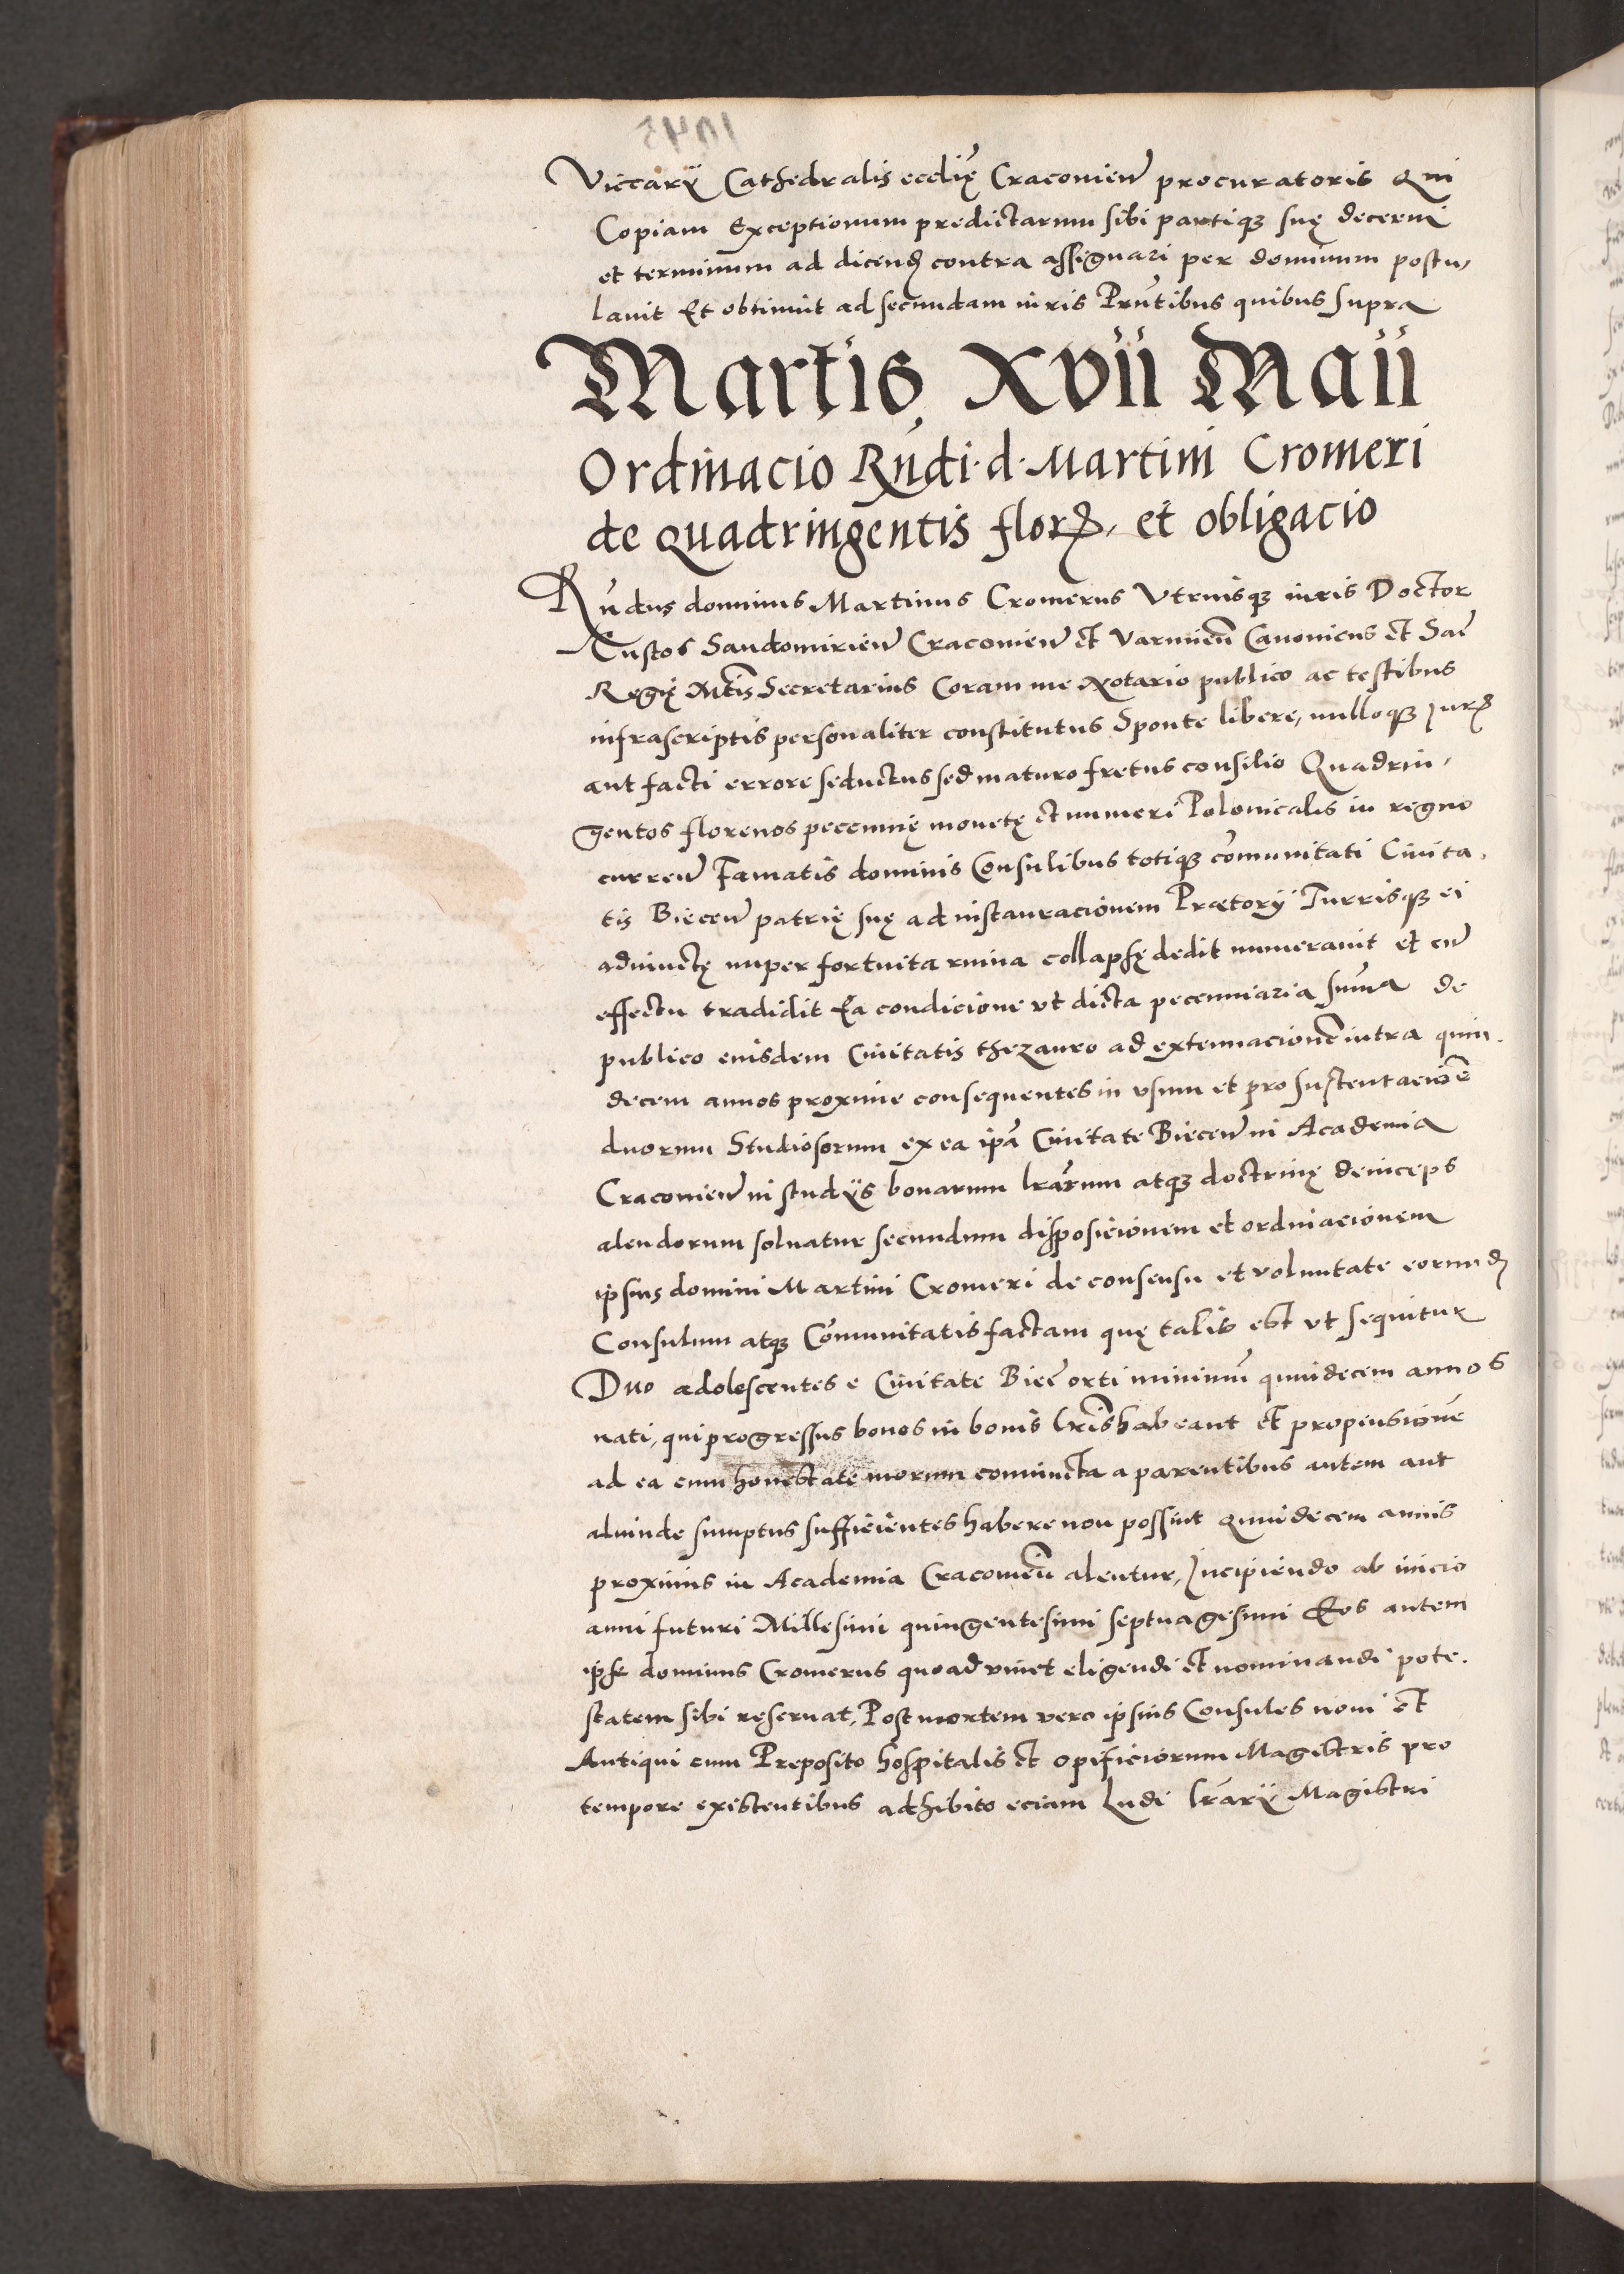 Viccarÿ Cathedralis ecclię Craconien procuratoris Qui
Copiam Exceptionum predictarum sibi partiqȝ suę decerni
et terminum ad dicend contra assignari per dominum postu,
lauit Et obtinuit ad secundam iuris Pñtibus quibus supra
Martis XVII Maii
Ordinacio Rñdi · d · Martini Cromeri
de quadringentis florꝝ, et obligacio
Rñdus dominus Martinus Cromerus Vtriusqȝ iuris Doctor
Custos Sandomirien Craconien et Varmieñ Canonicus et Sac̃
Regię Mtis Secretarius Coram me Notario publico ac testibus
infrascriptis personaliter constitutus Sponte libere, nulloqȝ Jurꝭ
aut facti errore seductus sed maturo fretus consilio Quadrin,
gentos florenos peccunię monetę et numeri Polonicalis in regno
curren Famatis dominis Consulibus totiqȝ com̃unitati Ciuita,
tis Biecen patrię suę ad instauracionem Prætorÿ Turrisqȝ ei
adiunctę nuper fortuita ruina collapsę dedit numerauit et cũ
effectu tradidit Ea condicione vt dicta peccuniaria sum̃a de
publico eiusdem Ciuitatis thezauro ad extenuacionẽ intra quin,
decem annos proxime consequentes in vsum et pro sustentacionẽ
duorum Studiosorum ex ea ip̃a Ciuitate Biecen in Academia
Craconien in studÿs bonarum lrãrum atqȝ doctrinę deinceps
alendorum soluatur secundum disposicionem et ordinacionem
ipsius domini Martini Cromeri de consensu et voluntate eorund
Consulum atqȝ Com̃unitatis factam quę talis est vt sequitur
Duo adolescentes e Ciuitate Biec̃ orti minimũ quindecem annos
nati, qui progressus bonos in bonis lrĩs habeant et propensionẽ
ad ea cum honestate morum coniuncta a parentibus autem aut
aliunde sumptus sufficientes habere non possint quindecem annis
proximis in Academia Craconieñ alentur, Incipiendo ab inicio
anni futuri Millesimi quingentesimi septuagesimi Eos autem
ipse dominus Cromerus quoad viuet eligendi et nominandi pote,
statem sibi reseruat, Post mortem vero ipsius Consules noui et
Antiqui cum Preposito hospitalis et opificiorum Magistris pro
tempore existentibus adhibito eciam Ludi lrãrÿ Magistri